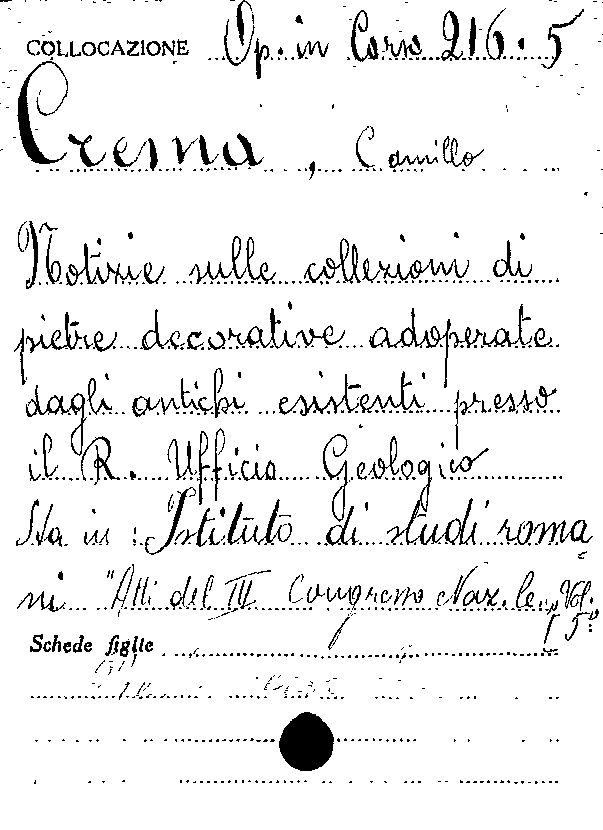 COLLOCAZIONE Op. in Cors 216. 5
Crema, Camillo
Notizie sulle collezioni di
pietre decorative adoperate
dagli antichi esistenti presso
il R. Ufficio Geologico
Sta in: Istituto di studi roma
ni "Atti del III Congresso Naz.le" Vol.
5º
Schede figlie